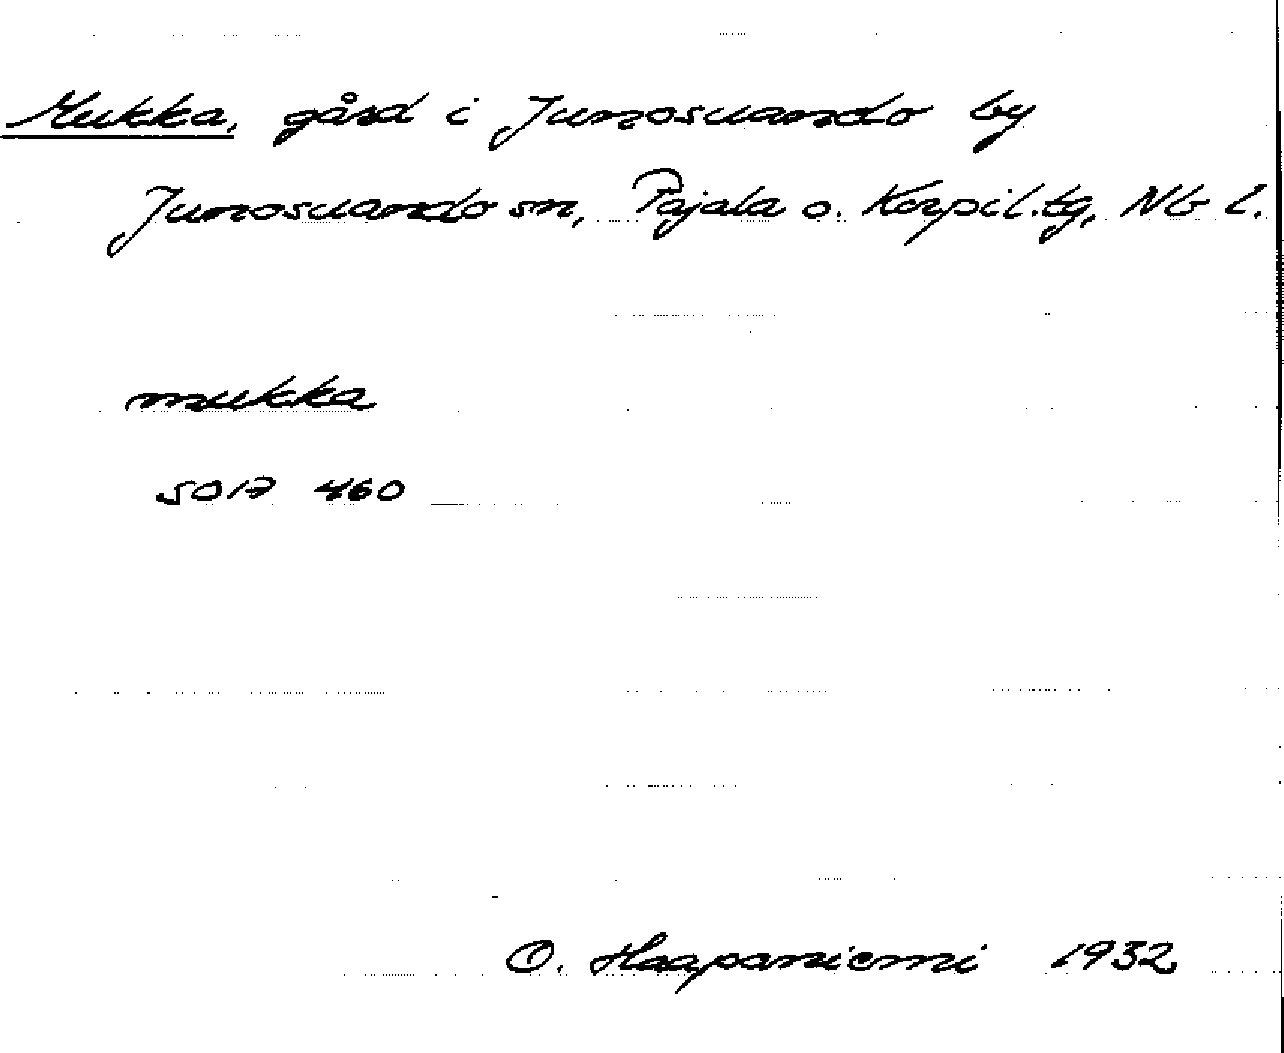 Mukka, gård i Junosuando by
Junosuando sn, Pajala o. Korpil.tg, Nb l.
mukka
5017 460
O. Haapaniemi 1932